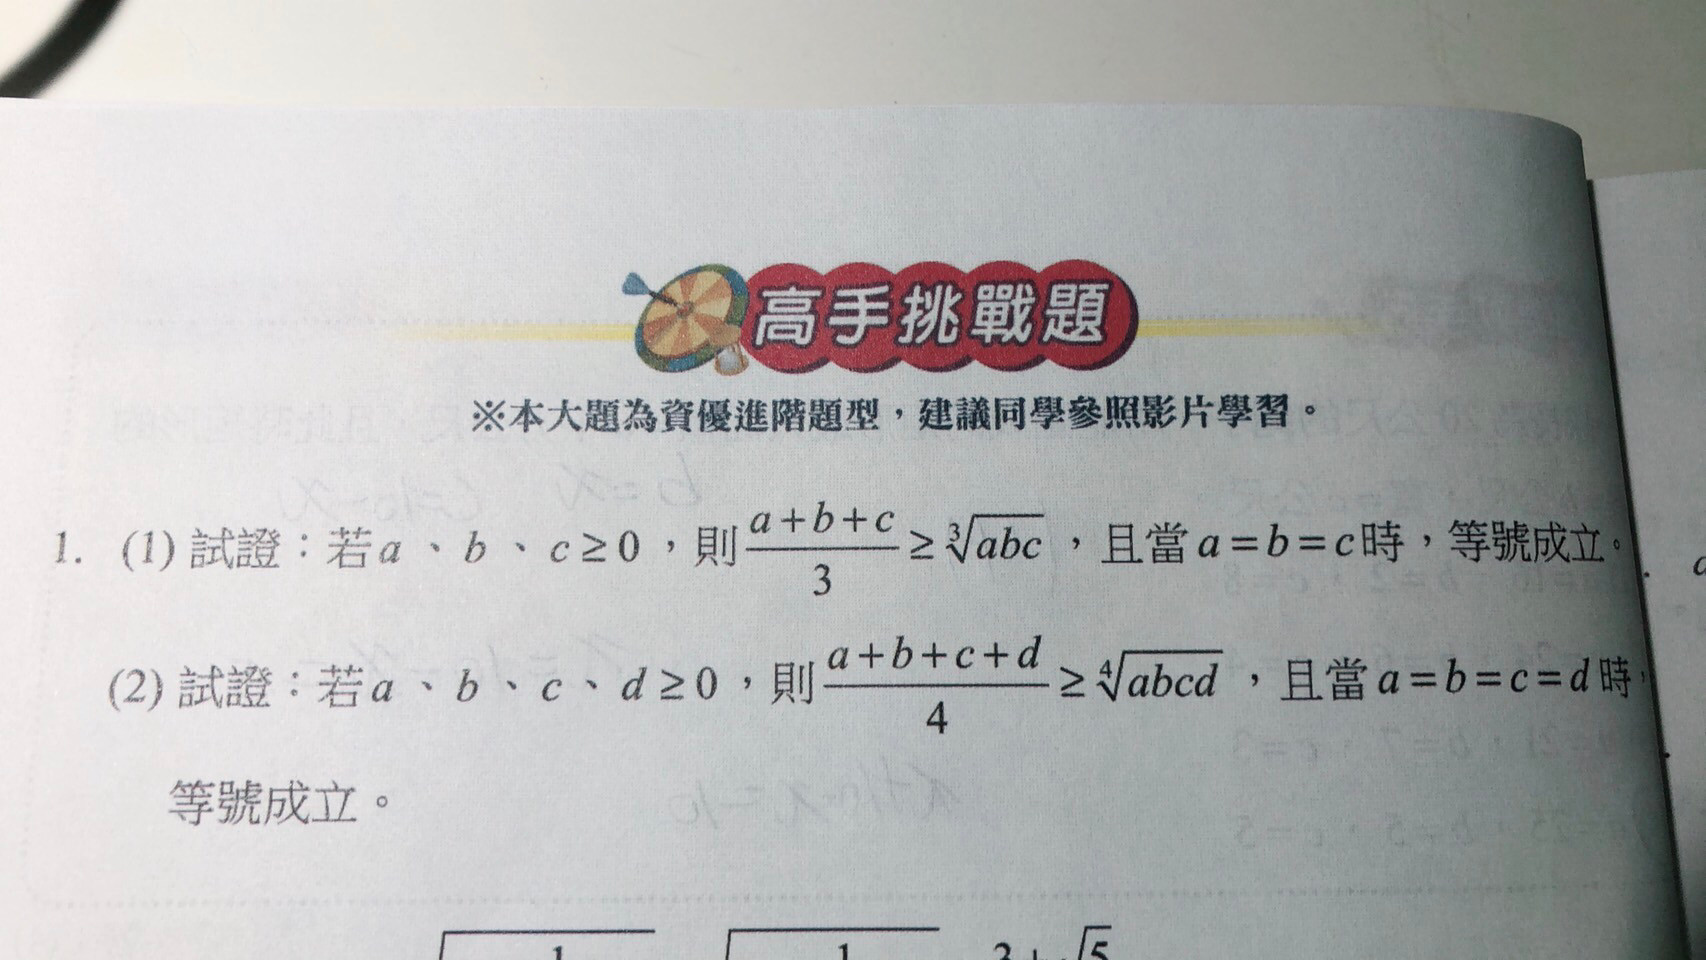 高手挑戰題
※本大題為資優進階題型，建議同學參照影片學習。
1. (1) 試證：若 a、b、c ≥ 0，則 \frac{a+b+c}{3} ≥ \sqrt[3]{abc}，且當 a = b = c 時，等號成立。
(2) 試證：若 a、b、c、d ≥ 0，則 \frac{a+b+c+d}{4} ≥ \sqrt[4]{abcd}，且當 a = b = c = d 時，
等號成立。